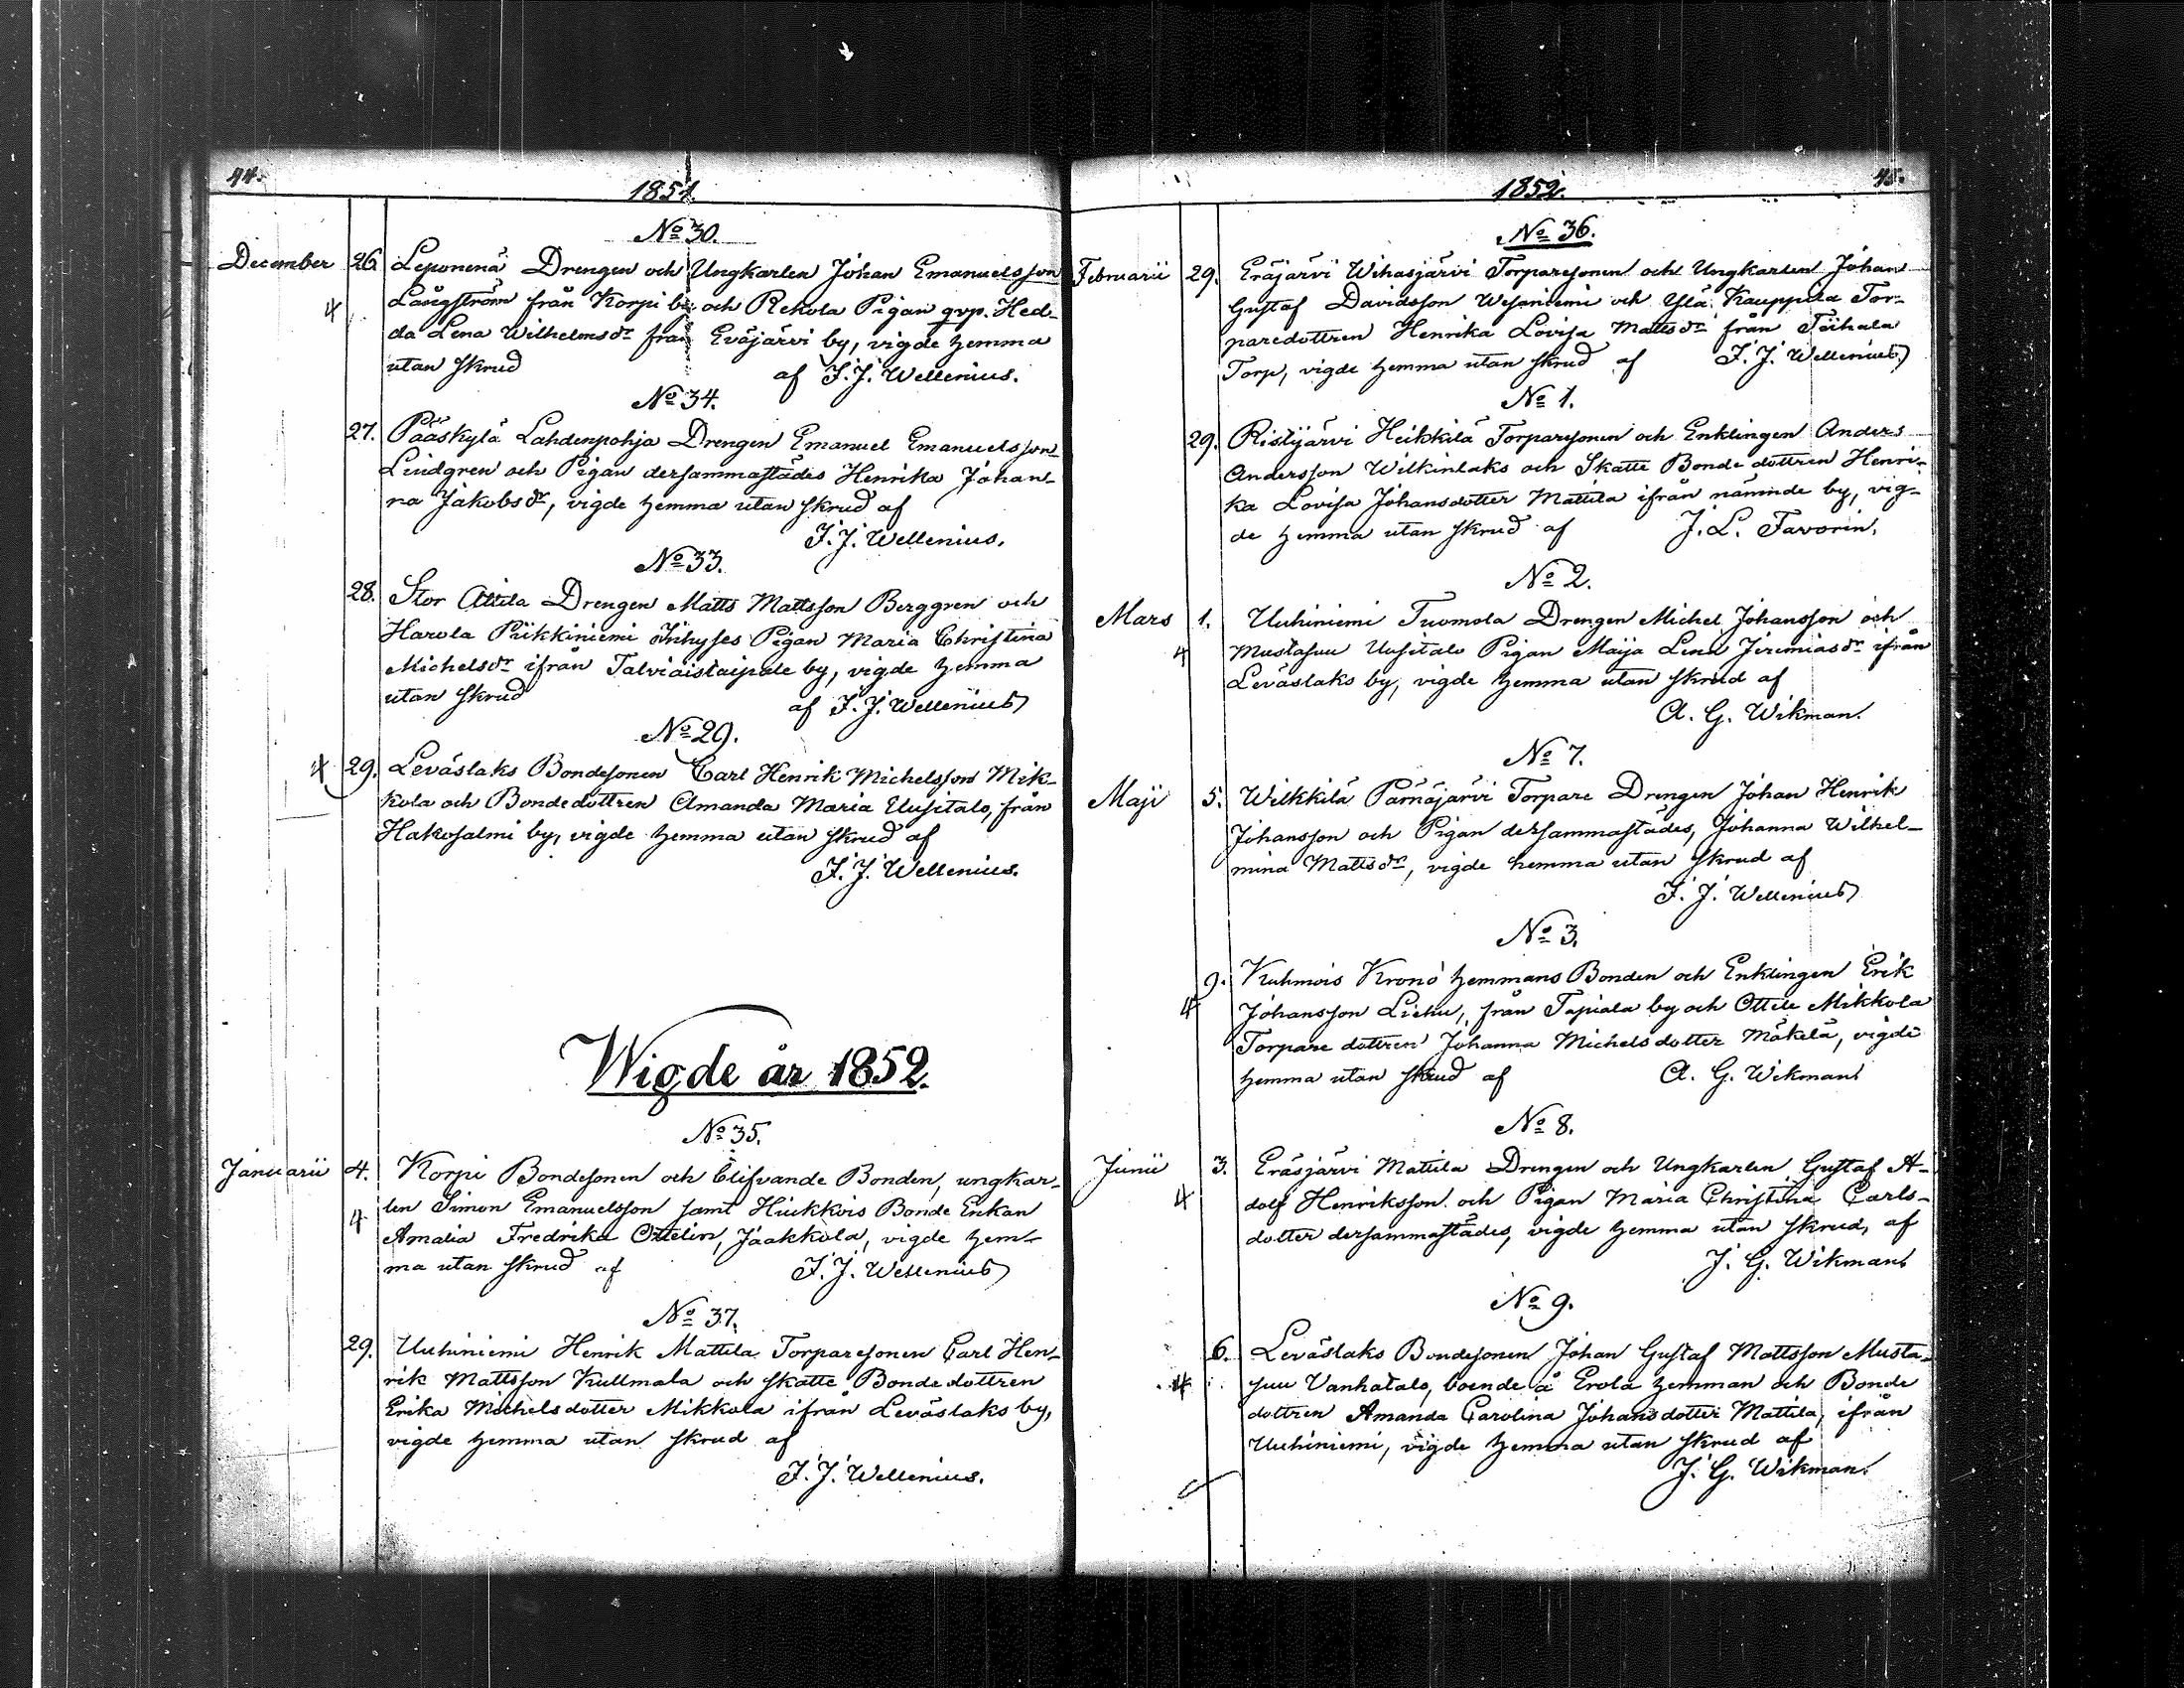 44.
1851.
No 30.
December 26. Leponenä Drengen och Ungkarlen Johan Emanuelsson
4 Långström från Korpi by och Rekola Pigan qvp. Hed-
da Lena Wilhelmsdr från Eräjärvi by, vigde hemma
utan skrud af F. J. Wellenius.
No 34.
27. Pääskylä Lahdenpohja Drengen Emanuel Emanuelsson
Lindgren och Pigan dersammastädes Henrika Johan-
na Jakobsdr, vigde hemma utan skrud af
F. J. Wellenius.
No 33.
28. Stor Attila Drengen Matts Mattsson Berggren och
Harola Piikkiniemi Inhyses Pigan Maria Christina
Michelsdr ifrån Talviaistaipale by, vigde hemma
utan skrud af F. J. Wellenius
No 29.
4 29. Leväslaks Bondesonen Carl Henrik Michelsson Mik-
kola och Bondedottren Amanda Maria Uusitalo, från
Hakosalmi by, vigde hemma utan skrud af
F. J. Wellenius.
Wigde år 1852.
No 35.
Januarii 4. Korpi Bondesonen och Blifvande Bonden, ungkar-
4 len Simon Emanuelsson samt Hiukkois Bonde Enkan
Amalia Fredrika Ottelin, Jaakkola, vigde hem-
ma utan skrud af F. J. Wellenius
No 37.
29. Uuhiniemi Henrik Mattila Torparesonen Carl Hen-
rik Mattsson Kullmala och skatte Bonde dottren
Erika Michelsdotter Mikkola ifrån Leväslaks by,
vigde hemma utan skrud af
F. J. Wellenius.
45.
1852.
No 36.
Februarii 29. Eräjärvi Wihasjärvi Torparesonen och Ungkarlen Johan
Gustaf Davidsson Wesaniemi och Ylä Kauppila Tor-
paredottren Henrika Lovisa Mattsdr från Tiihala
Torp, vigde hemma utan skrud af F. J. Wellenius
No 1.
29. Ristijärvi Heikkilä Torparesonen och Enklingen Anders
Andersson Wilkinlaks och Skatte Bonde dottren Henri-
ka Lovisa Johansdotter Mattila ifrån nämnde by, vig-
de hemma utan skrud af J. L. Favorin.
No 2.
Mars 1. Uuhiniemi Tuomola Drengen Michel Johansson och
4 Mustasuu Uusitalo Pigan Maija Lena Jeremiasdr ifrån
Leväslaks by, vigde hemma utan skrud af
A. G. Wikman.
No 7.
Maji 5. Wilkkilä Pärnäjärvi Torpare Drengen Johan Henrik
Johansson och Pigan dersammastädes, Johanna Wilhel-
mina Mattsdr, vigde hemma utan skrud af
F. J. Wellenius
No 3.
9. Kuhmois Krono hemmans Bonden och Enklingen Erik
4 Johansson Liehu, från Tapiala by och Ottila Mikkola
Torpare dottren Johanna Michelsdotter Mäkelä, vigde
hemma utan skrud af A. G. Wikman
No 8.
Junii 3. Eräsjärvi Mattila Drengen och Ungkarlen Gustaf A-
4 dolf Henriksson och Pigan Maria Christina Carls-
dotter dersammastädes, vigde hemma utan skrud, af
J. G. Wikman
No 9.
6. Leväslaks Bondesonen Johan Gustaf Mattsson Musta-
4 suu Vanhatalo, boende å Erola hemman och Bonde
dottren Amanda Carolina Johansdotter Mattila, ifrån
Uuhiniemi, vigde hemma utan skrud af
J. G. Wikman.